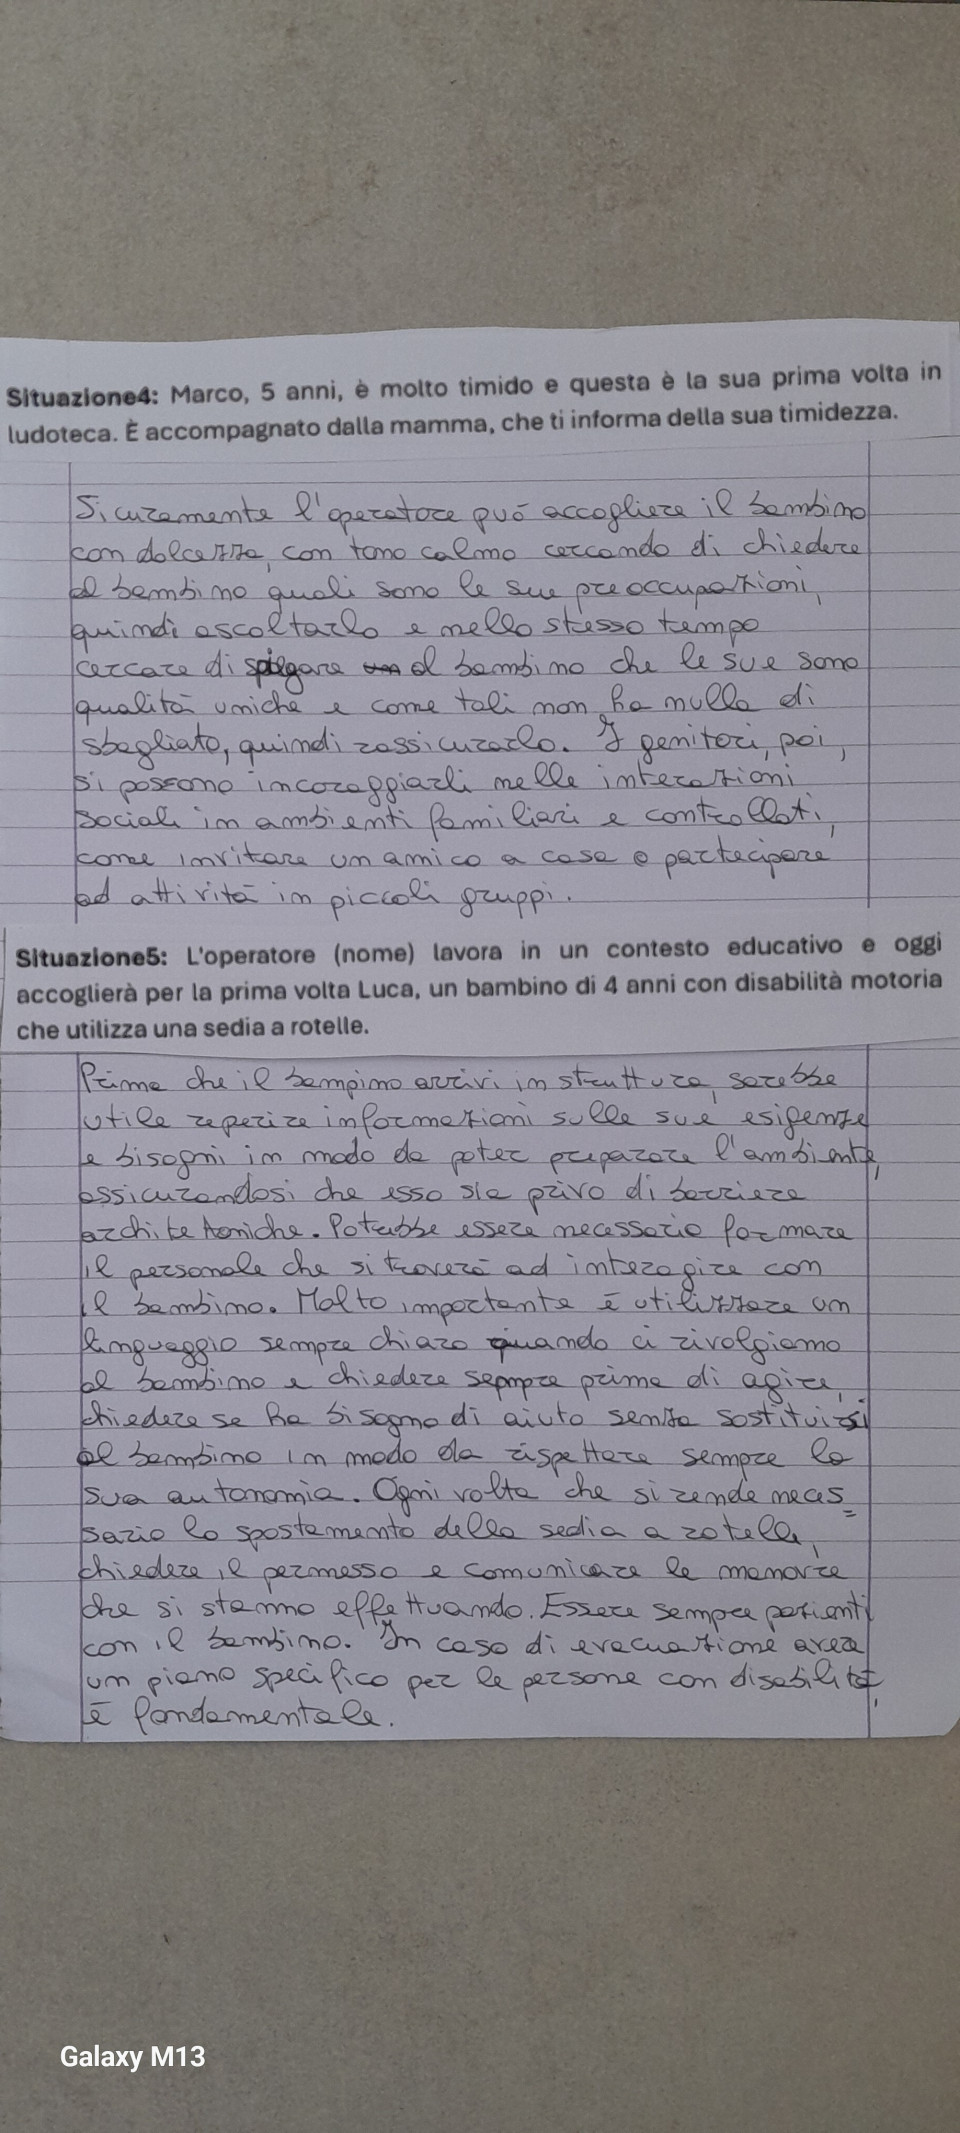 Situazione4: Marco, 5 anni, è molto timido e questa è la sua prima volta in
ludoteca. È accompagnato dalla mamma, che ti informa della sua timidezza.
Sicuramente l'operatore può accogliere il bambino
con dolcezza, con tono calmo cercando di chiedere
al bambino quali sono le sue preoccupazioni,
quindi ascoltarlo e nello stesso tempo
cercare di spiegare al bambino che le sue sono
qualità uniche e come tali non ha nulla di
sbagliato, quindi rassicurarlo. I genitori, poi,
si possono incoraggiarli nelle interazioni
sociali in ambienti familiari e controllati,
come invitare un amico a casa o partecipare
ad attività in piccoli gruppi.
Situazione5: L'operatore (nome) lavora in un contesto educativo e oggi
accoglierà per la prima volta Luca, un bambino di 4 anni con disabilità motoria
che utilizza una sedia a rotelle.
Prima che il bampino arrivi in struttura, sarebbe
utile reperire informazioni sulle sue esigenze
e bisogni in modo da poter preparare l'ambiente,
assicurandosi che esso sia privo di barriere
architettoniche. Potrebbe essere necessario formare
il personale che si troverà ad interagire con
il bambino. Molto importante è utilizzare un
linguaggio sempre chiaro quando ci rivolgiamo
al bambino e chiedere sempre prima di agire,
chiedere se ha bisogno di aiuto senza sostituirsi
al bambino in modo da rispettare sempre la
sua autonomia. Ogni volta che si rende neces=
sario lo spostamento della sedia a rotelle,
chiedere il permesso e comunicare le manovre
che si stanno effettuando. Essere sempre pazienti
con il bambino. In caso di evacuazione avere
un piano specifico per le persone con disabilità,
è fondamentale.
Galaxy M13